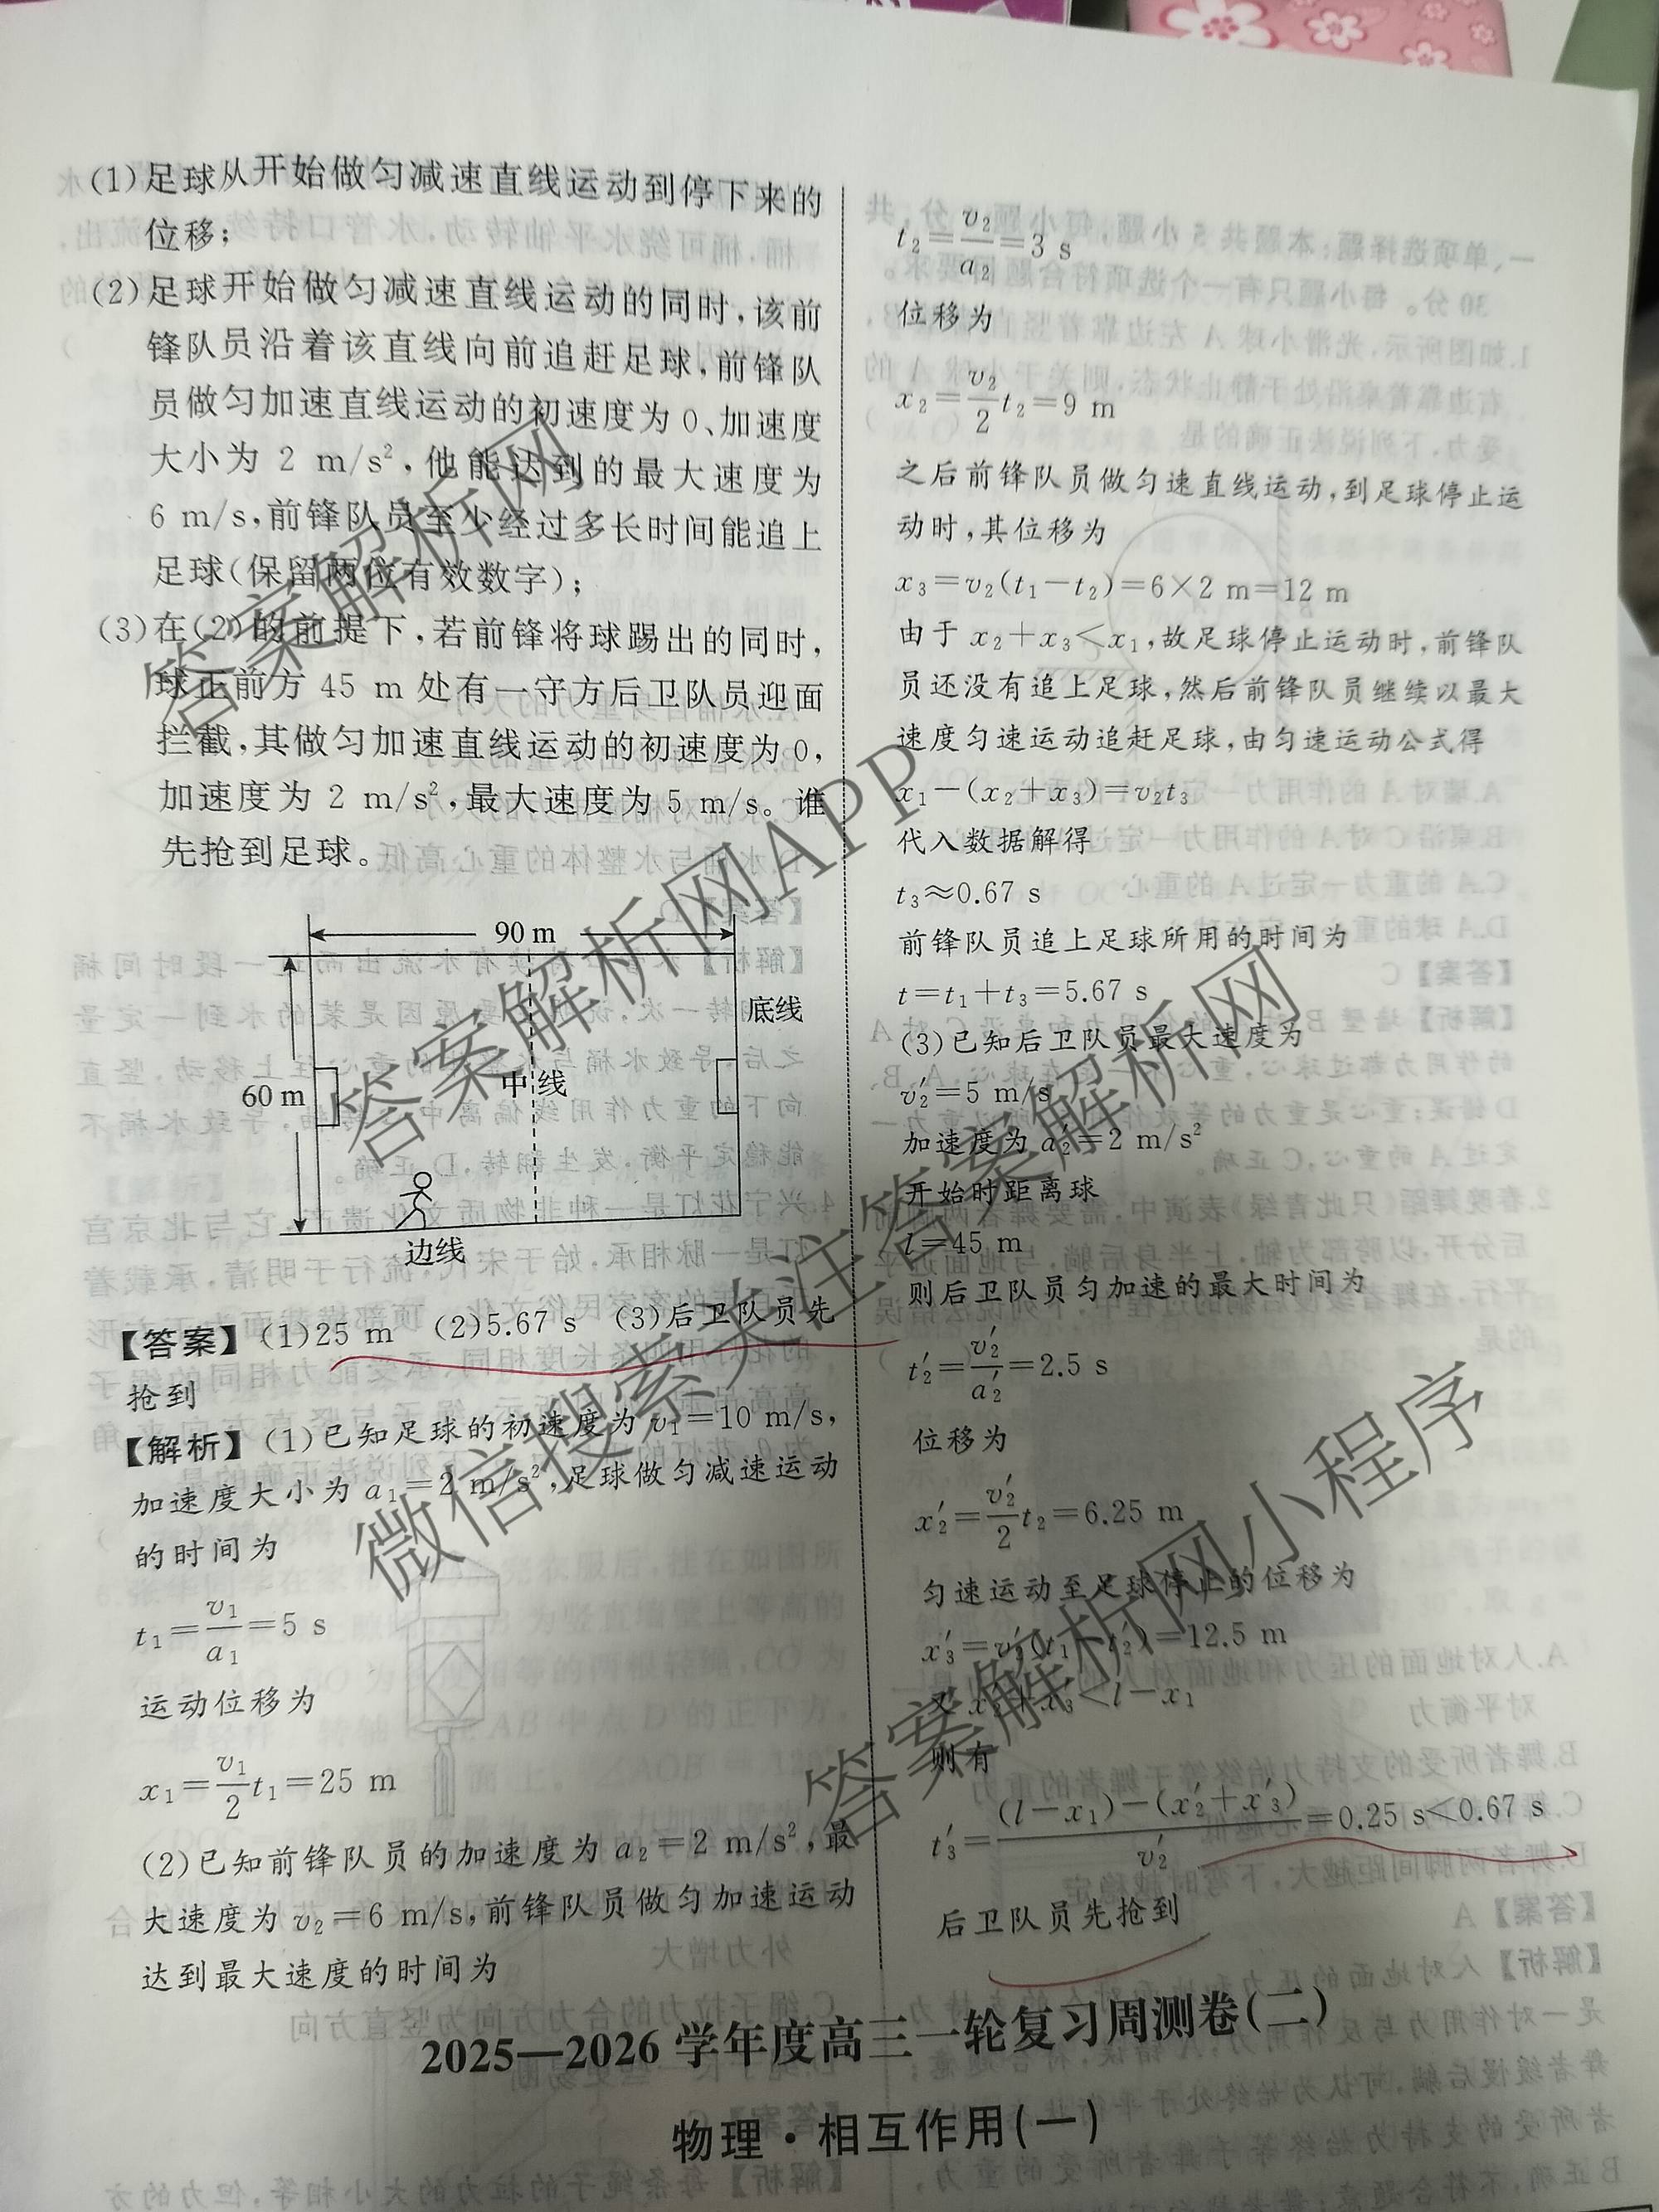 (1)足球从开始做匀减速直线运动到停下来的
位移;
(2)足球开始做匀减速直线运动的同时,该前
锋队员沿着该直线向前追赶足球,前锋队
员做匀加速直线运动的初速度为 0、加速度
大小为 2 m/s²,他能达到的最大速度为
6 m/s,前锋队员至少经过多长时间能追上
足球(保留两位有效数字);
(3)在(2)的前提下,若前锋将球踢出的同时,
球正前方 45 m 处有一守方后卫队员迎面
拦截,其做匀加速直线运动的初速度为 0,
加速度为 2 m/s²,最大速度为 5 m/s。谁
先抢到足球。
90 m
底线
中线
60 m
边线
【答案】(1)25 m (2)5.67 s (3)后卫队员先
抢到
【解析】(1)已知足球的初速度为 v₁=10 m/s,
加速度大小为 a₁=2 m/s²,足球做匀减速运动
的时间为
t₁=v₁/a₁=5 s
运动位移为
x₁=v₁/2 t₁=25 m
(2)已知前锋队员的加速度为 a₂=2 m/s²,最
大速度为 v₂=6 m/s,前锋队员做匀加速运动
达到最大速度的时间为
t₂=v₂/a₂=3 s
位移为
x₂=v₂/2 t₂=9 m
之后前锋队员做匀速直线运动,到足球停止运
动时,其位移为
x₃=v₂(t₁-t₂)=6×2 m=12 m
由于 x₂+x₃<x₁,故足球停止运动时,前锋队
员还没有追上足球,然后前锋队员继续以最大
速度匀速运动追赶足球,由匀速运动公式得
x₁-(x₂+x₃)=v₂t₃
代入数据解得
t₃≈0.67 s
前锋队员追上足球所用的时间为
t=t₁+t₃=5.67 s
(3)已知后卫队员最大速度为
v₂′=5 m/s
加速度为 a₂′=2 m/s²
开始时距离球
l=45 m
则后卫队员匀加速的最大时间为
t₂′=v₂′/a₂′=2.5 s
位移为
x₂′=v₂′/2 t₂=6.25 m
匀速运动至足球停止的位移为
x₃′=v₂′(t₁-t₂′)=12.5 m
又 x₂′+x₃′<l-x₁
则有
t₃′=(l-x₁)-(x₂′+x₃′)/v₂′=0.25 s<0.67 s
后卫队员先抢到
2025—2026 学年度高三一轮复习周测卷(二)
物理·相互作用(一)
答案解析网
答案解析网APP
微信搜索关注答案解析网
答案解析网小程序